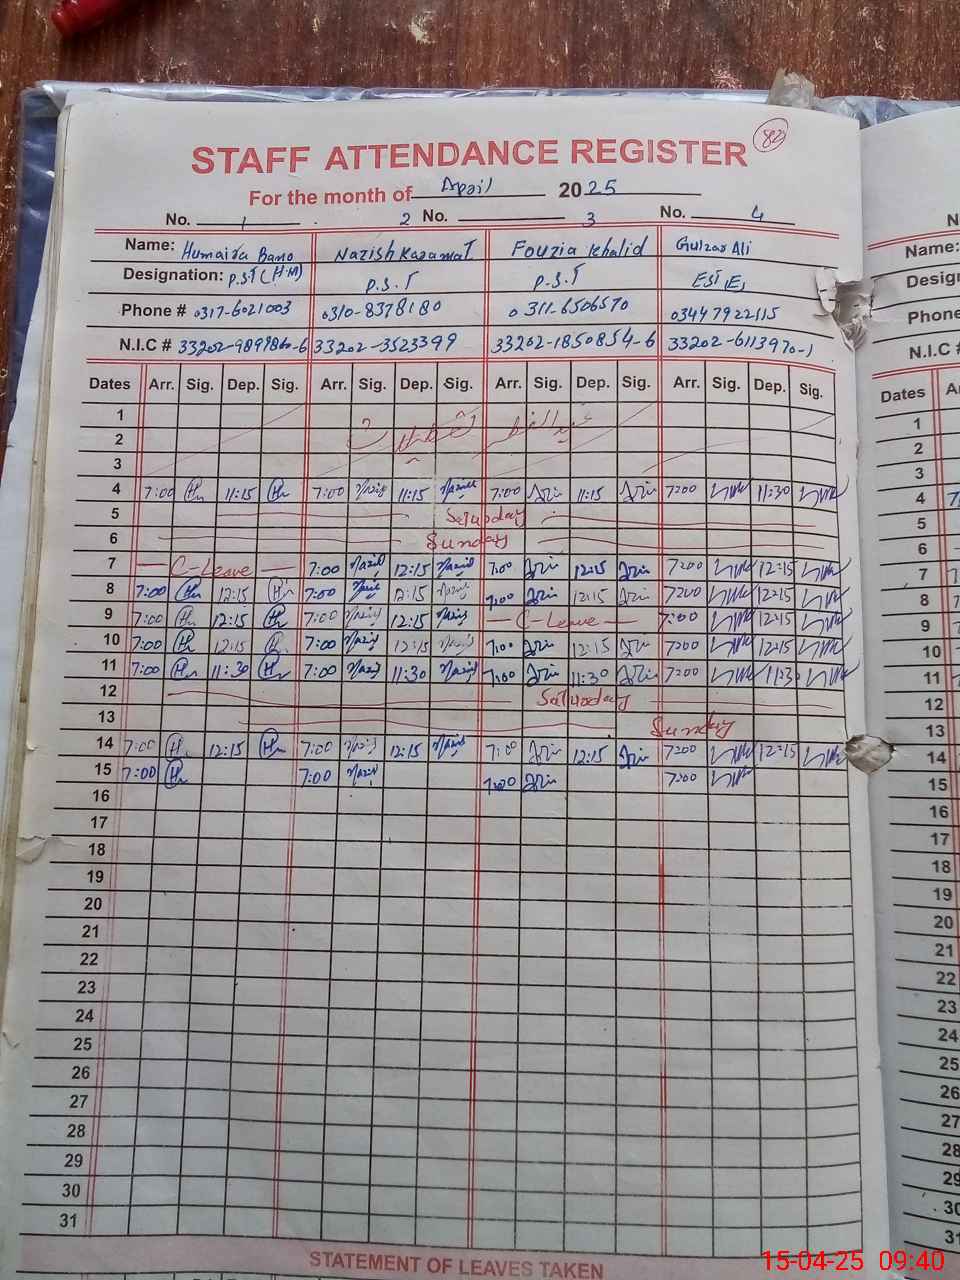 82
STAFF ATTENDANCE REGISTER
For the month of April 2025
No. 1 2 No. 3 No. 4
Name: Humaira Bano Nazish Karamat Fouzia Khalid Gulzar Ali
Designation: P.S.T (H.M) P.S.T P.S.T EST (E)
Phone # 0317-6021003 0310-8378180 0311-6506570 03447922115
N.I.C # 33202- 33202-3523399 33202-1850854-6 33202-6113970-1
Dates Arr. Sig. Dep. Sig. Arr. Sig. Dep. Sig. Arr. Sig. Dep. Sig. Arr. Sig. Dep. Sig.
1 عید الفطر
2
3
4 7:00 Hu 11:15 Hu 7:00 Nazish 11:15 Nazish 7:00 11:15 7:00 11:30
5 Saturday
6 Sunday
7 C-Leave 7:00 Nazish 12:15 Nazish 7:00 12:15 7:00 12:15
8 7:00 Hu 12:15 Hu 7:00 Nazish 12:15 Nazish 7:00 12:15 7:00 12:15
9 7:00 Hu 12:15 Hu 7:00 Nazish 12:15 Nazish C-Leave 7:00 12:15
10 7:00 Hu 12:15 7:00 Nazish 12:15 Nazish 7:00 12:15 7:00 12:15
11 7:00 Hu 11:30 Hu 7:00 Nazish 11:30 Nazish 7:00 11:30 7:00 11:30
12 Saturday
13 Sunday
14 7:00 Hu 12:15 Hu 7:00 Nazish 12:15 Nazish 7:00 12:15 7:00 12:15
15 7:00 Hu 7:00 Nazish 7:00 7:00
16
17
18
19
20
21
22
23
24
25
26
27
28
29
30
31
STATEMENT OF LEAVES TAKEN
N
Name:
Design
Phone
N.I.C #
Dates A
1
2
3
4 7
5
6
7
8
9
10
11
12
13
14
15
16
17
18
19
20
21
22
23
24
25
26
27
28
29
30
31
15-04-25 09:40